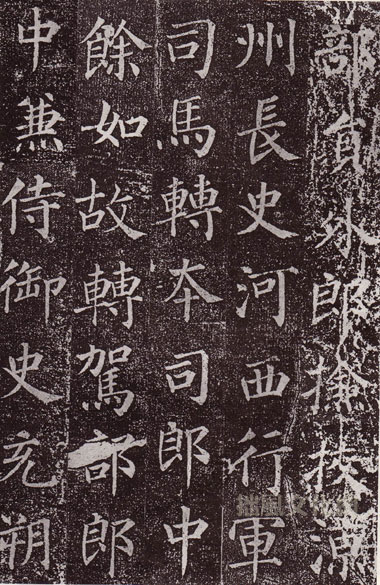 部貟外郎撿挍涼
州長史河西行軍
司馬轉夲司郎中
餘如故轉駕部郎
中兼侍御史充朔